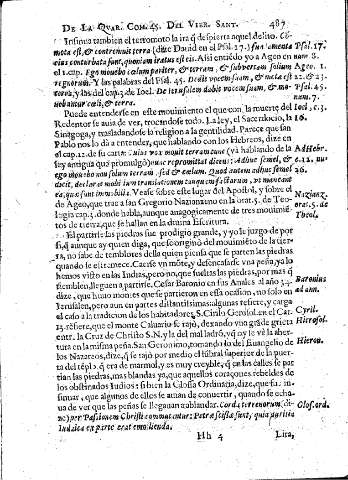 DE LA QUAR. COM. 45. DEL VIER. SANT. 487
Insinua tambien el terremoto la ira q̃ despierta aquel delito. Cõ-
mota est, & contremuit terra (dize David en el Psal. 17.) fundamenta Psal. 17.
conturbata sunt, quoniam iratus est eis. Assi entiẽdo yo a Ageo en num. 8.
el 2. cap. Ego movebo cœlum pariter, & terram, & subvertam solium Ageo. 2.
regnorum. Y las palabras del Psal. 45. Dedit vocem suam, & mota est 22. & 23.
terra, y las del cap. 3. de Ioel. De Ierusalem dabit vocem suam, & mo- Psal. 45.
vebuntur cœli, & terra. num. 7.
Puede entenderse en este movimiento el que con la muerte del Ioel. c. 3.
Redentor se auia de ver, trocandose todo. La ley, el Sacerdocio, la 16.
Sinagoga, y trasladandose la religion a la gentilidad. Parece que san
Pablo nos lo dà a entender, que hablando con los Hebreos, dize en
el cap. 12. de su carta: Cuius vox movit terram tunc (và hablando de la Ad Hebr.
ley antigua quãdo promulgò) nunc repromittit dicens: Adhuc semel, & c. 12. num.
ego movebo non solum terram, sed & cœlum. Quod autem adhuc semel 26.
dicit, declarat mobilium translationem tanquam factorum, ut maneant
ea, quæ sunt immobilia. Vease sobre este lugar del Apostol, y sobre el
de Ageo, que trae a san Gregorio Nazianzeno en la orat. 5. de Teo- Nazianz.
logia cap. donde habla, aunque anagogicamente de tres movimiẽ- orat. 5. de
tos de tierra, que se hallan en la diuina Escritura. Theol.
El partirse las piedras fue prodigio grande, y yo le juzgo de por
si, q̃ aunque ay quien diga, que se originò del mouimiẽto de la tier-
ra, no sabe de temblores della quien piensa que se parten las piedras
quando se estremece. Caense vn mõte, y desencasarse vna peña, ya lo
hemos visto en las Indias, pero no, que sueltas las piedras, por mas q̃
tiemblen, lleguen a partirse. Cesar Baronio en sus Anales al año 34. Baronius
dize, que huuo montes que se partieron en essa ocasion, no solo en ad ann.
Ierusalen, pero aun en partes distantissimas algunas refiere, y carga
el caso a la tradicion de los habitadores. S. Cirilo Gerosol. en el Cat. Cyril.
13. refiere, que el monte Caluario se rajò, dexando vna grãde grieta Hierosol.
entre la Cruz de Christo S.N. y la del mal ladrõ, q̃ oy se vè la aber-
tura en la misma peña. San Geronimo, tomando lo del Euangelio de Hieron.
los Nazareos, dize, q̃ se rajò por medio el lũbral superior de la puer-
ta del tẽplo, q̃ era de marmol, y es muy creyble, q̃ en las calles se par-
tian las piedras, mas blandas ya, que aquellos coraçones rebeldes de
los obstinados Iudios: si bien la Glossa Ordinaria, dize, que fue in-
sinuar, que algunos de ellos se auian de conuertir, quando se echa-
ua de ver que las peñas se llegauan a ablandar. Corda terrenorum (di- Glos. ord.
ze) per Passionem Christi commutantur: Petræ scissæ sunt, quia duritia
Iudaica ex parte erat emollienda.
Hh 4 Lira,